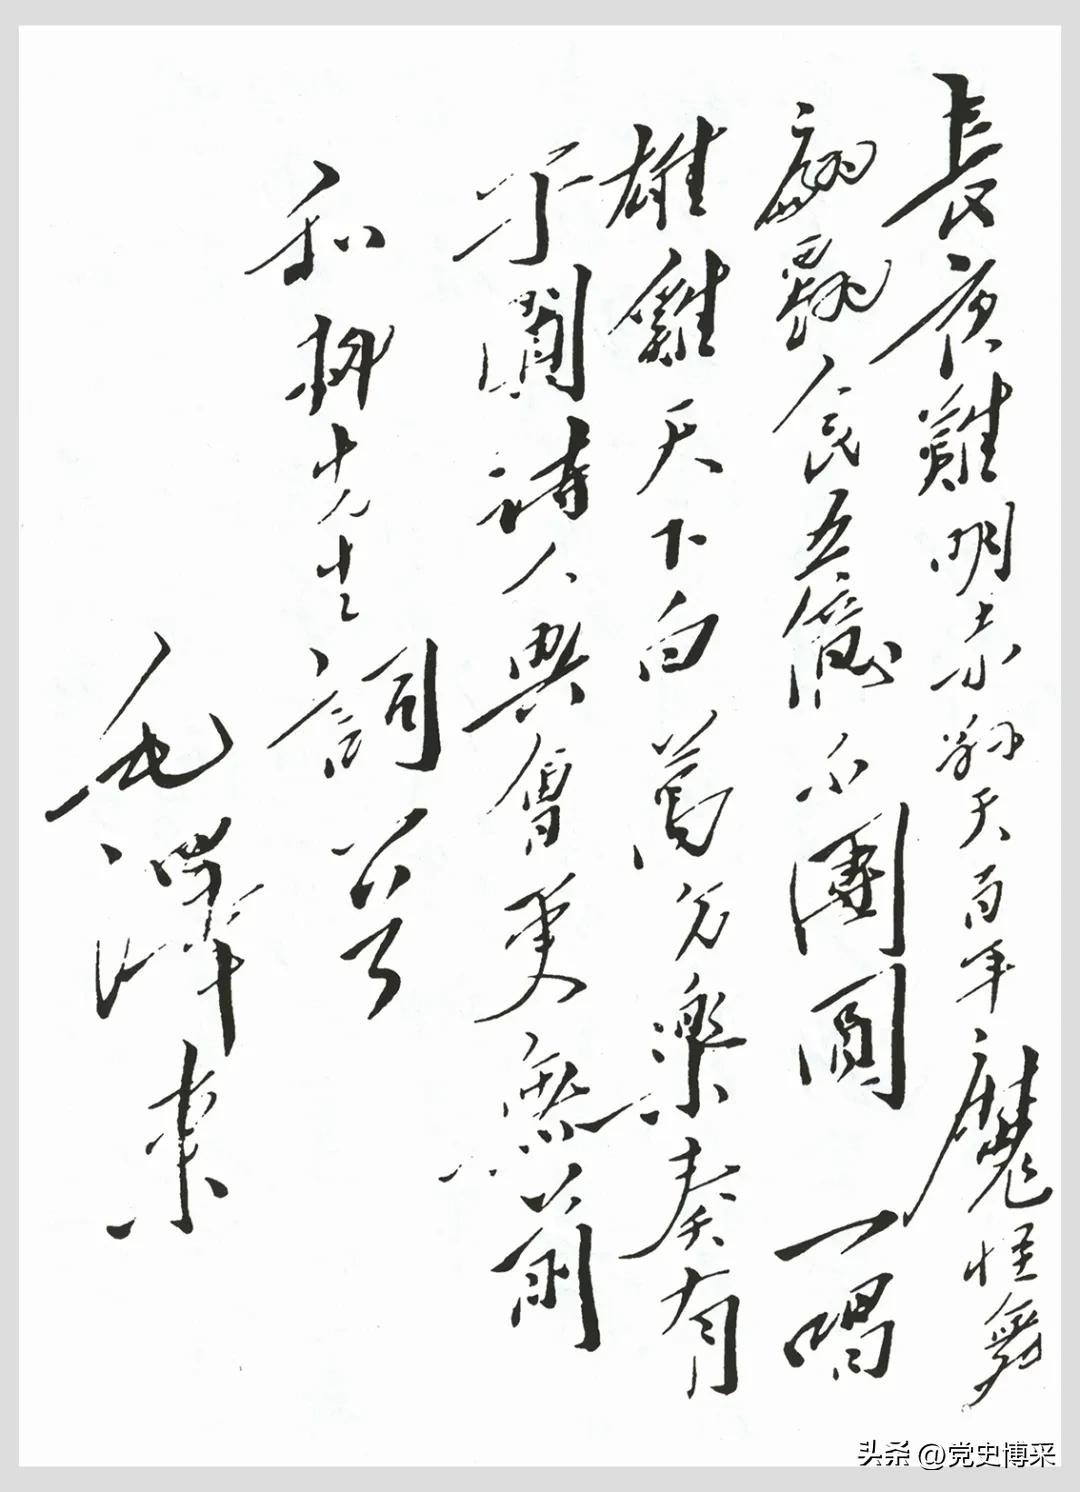 長夜難明赤縣天百年魔怪舞
翩躚人民五億不團圓 一唱
雄雞天下白萬方樂奏有
于闐詩人興會更無前
和柳先生詞首
毛澤東
头条 @党史博采